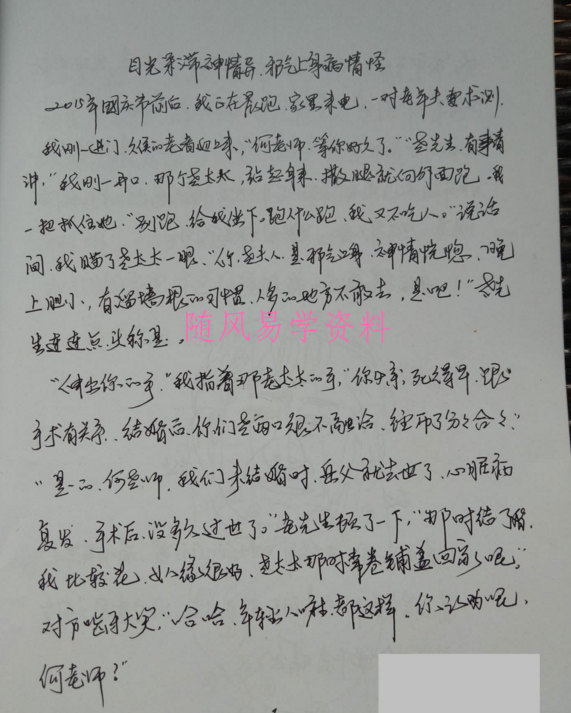 目光呆滞神情异、邪气上身病情怪
2015年国庆节前后，我正在晨跑，家里来电，一对老年夫妻求测。
我刚一进门，久候的老者迎上来，“何老师，等你好久了。”“老先生，有事请
讲，”我刚一开口，那个老太太，站起身来，撒腿就向外面跑，我
一把抓住她，“别跑，给我坐下。跑什么跑，我又不吃人。”说话
间，我瞄了老太太一眼，“你老夫人，是邪气上身，神情恍惚，晚
上胆小，有溜墙根的习惯，人多的地方不敢去，是吧！”老先
生连连点头称是。
随风易学资料
“伸出你的手，”我指着那老太太的手，“你父亲，死得早，跟
手术有关系，结婚后，你们老两口很不融洽，经历了分分合合。”
“是的，何老师，我们未结婚时，岳父就去世了，心脏病
复发，手术后，没多久过世了。”老先生顿了一下，“那时结了婚，
我比较花，女人缘又很好，老太太那时常卷铺盖回家呢，”
对方咧牙大笑，“哈哈，年轻人嘛，都这样，你说的呢，
何老师？”